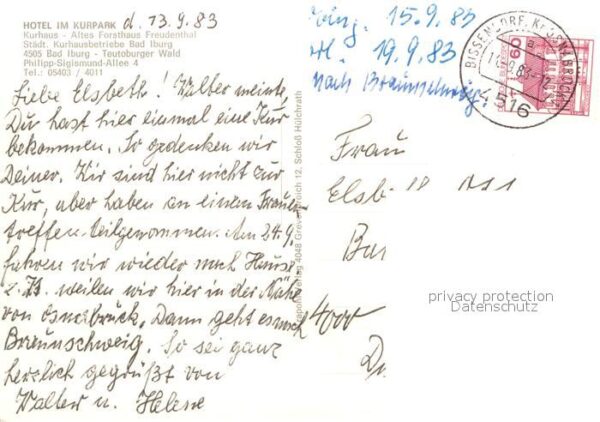 HOTEL IM KURPARK d. 13.9.83
Kurhaus - Altes Forsthaus Freudenthal
Städt. Kurhausbetriebe Bad Iburg
4505 Bad Iburg - Teutoburger Wald
Philipp-Sigismund-Allee 4
Tel.: 05403 / 4011
Liebe Elsbeth! Walter meinte,
Du hast hier einmal eine Kur
bekommen. So gedenken wir
Deiner. Wir sind hier nicht zur
Kur, aber haben an einem
treffen teilgenommen. Am 24.9.
fahren wir wieder nach Hause
z. Zt. weilen wir hier in der Nähe
von Osnabrück. Dann geht es nach
Braunschweig. So sei ganz
herzlich gegrüßt von
Walter u. Helene
4048 12, Schloß Hülchrath
15.9.83
19.9.83
nach Braunschweig.
BISSENDORF, KR OSNABRÜCK
60
16
Frau
Elsb
4000
privacy protection
Datenschutz